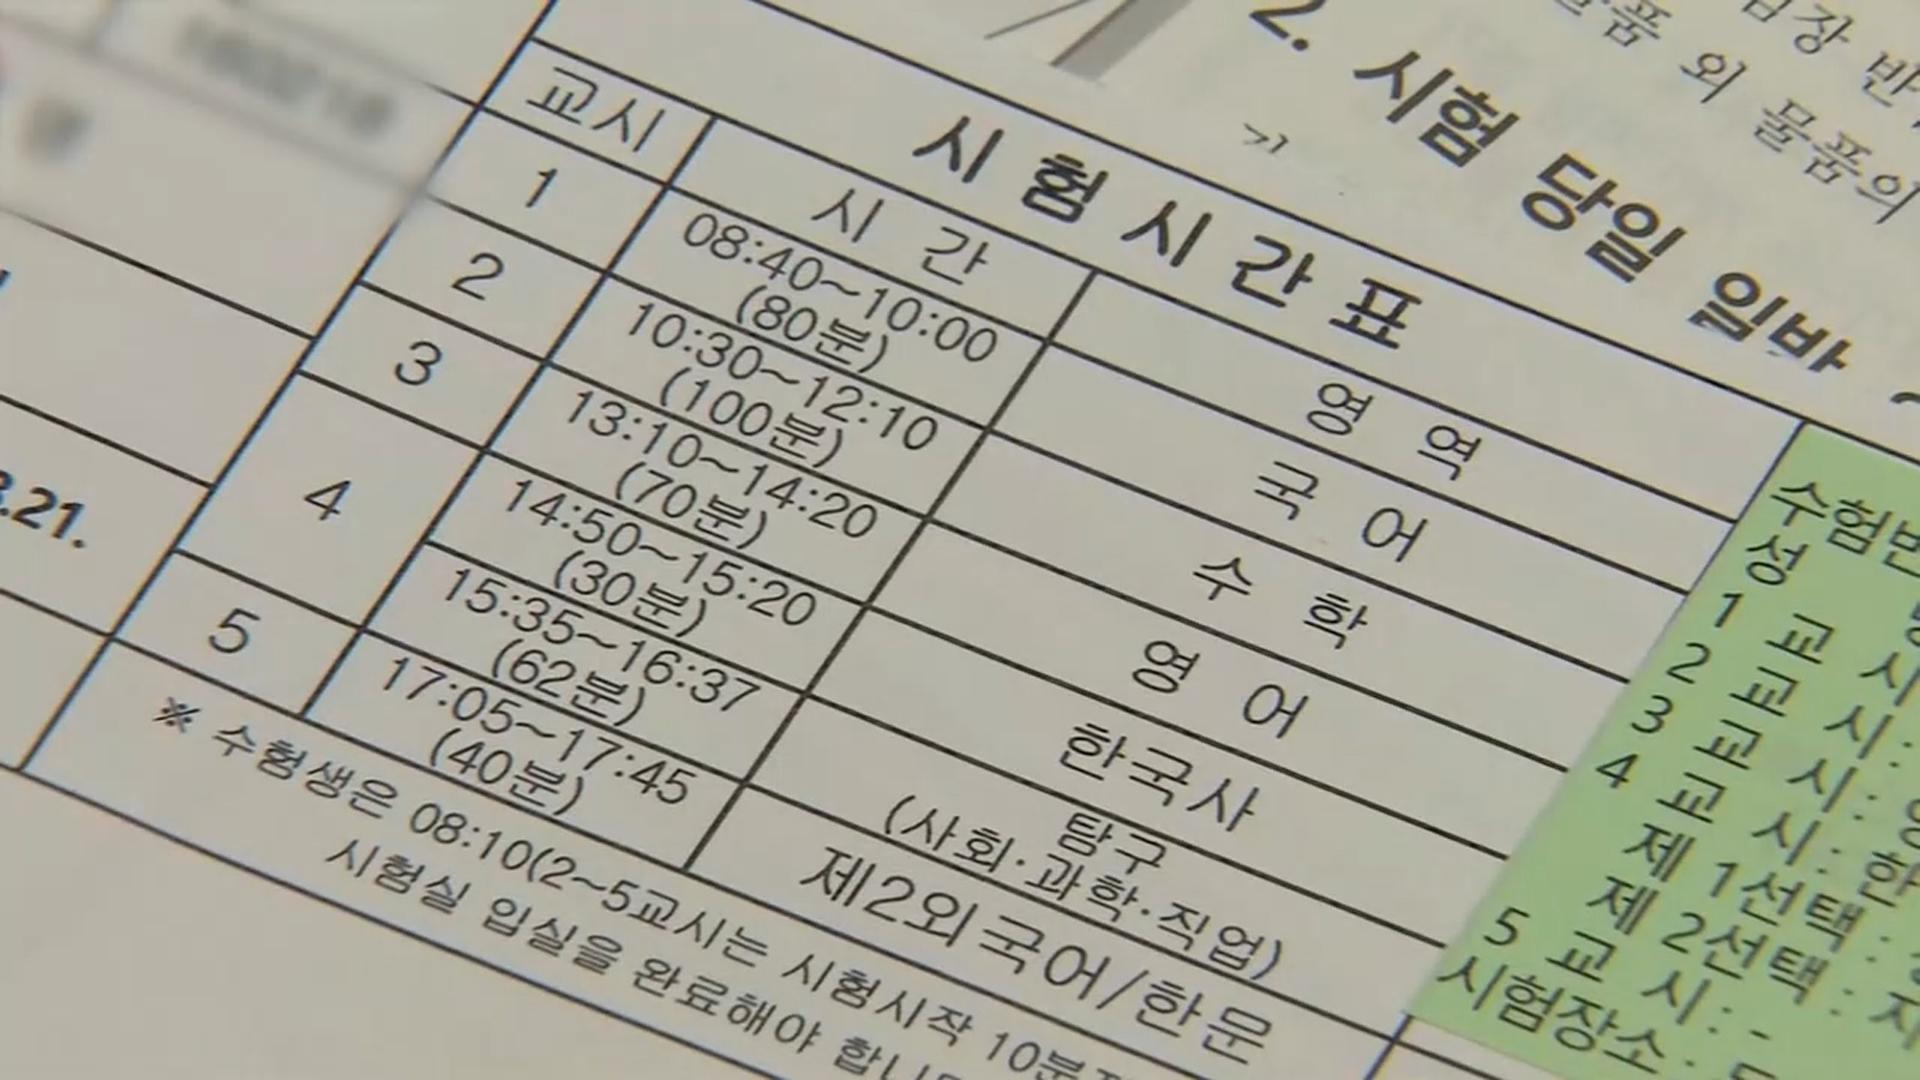 2. 시험 당일
외 물품의
시 험 시 간 표
교시 시 간 영 역
1 08:40~10:00 (80분) 국 어
2 10:30~12:10 (100분) 수 학
3 13:10~14:20 (70분) 영 어
4 14:50~15:20 (30분) 한국사
15:35~16:37 (62분) 탐구 (사회·과학·직업)
5 17:05~17:45 (40분) 제2외국어/한문
※ 수험생은 08:10(2~5교시는 시험시작 10분
시험실 입실을 완료해야
21.
성
1 교 시
2 교 시:
3 교 시:
4 교 시: 한
제 1선택:
제 2선택:
5 교 시: -
시험장소: